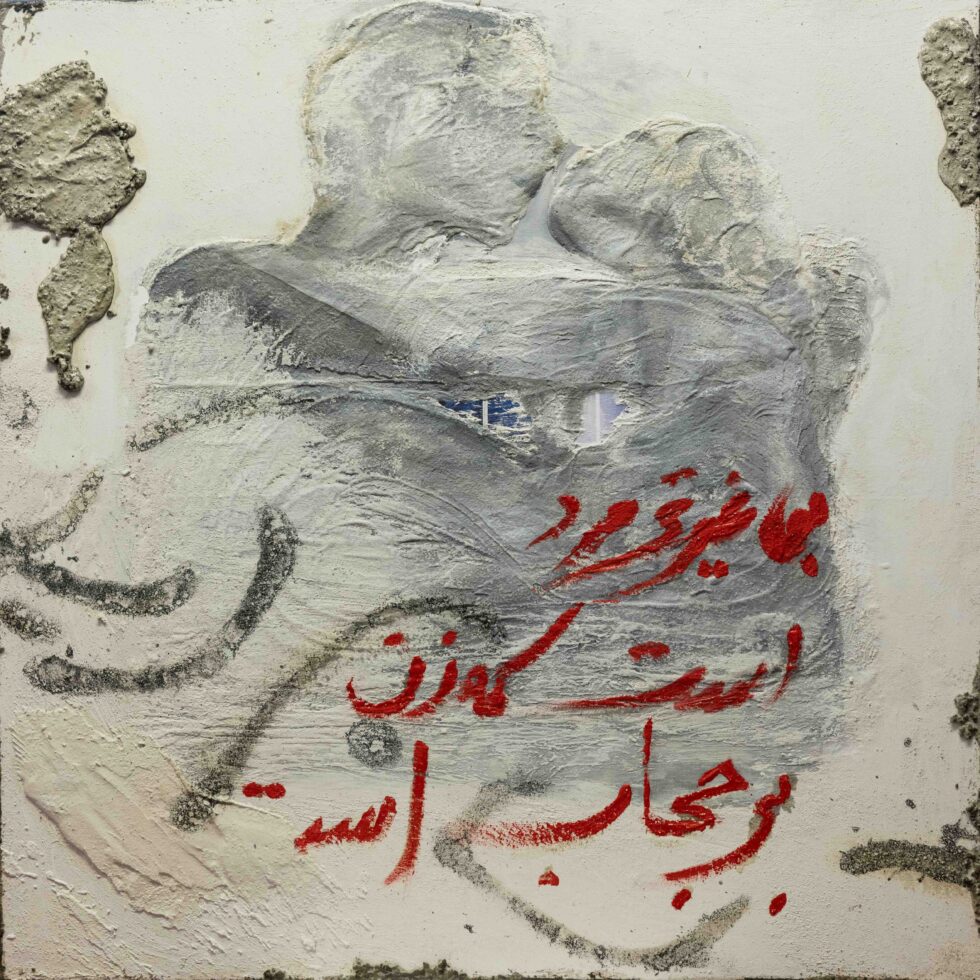 بی غیرتی مرد
است که زن
بی حجاب است